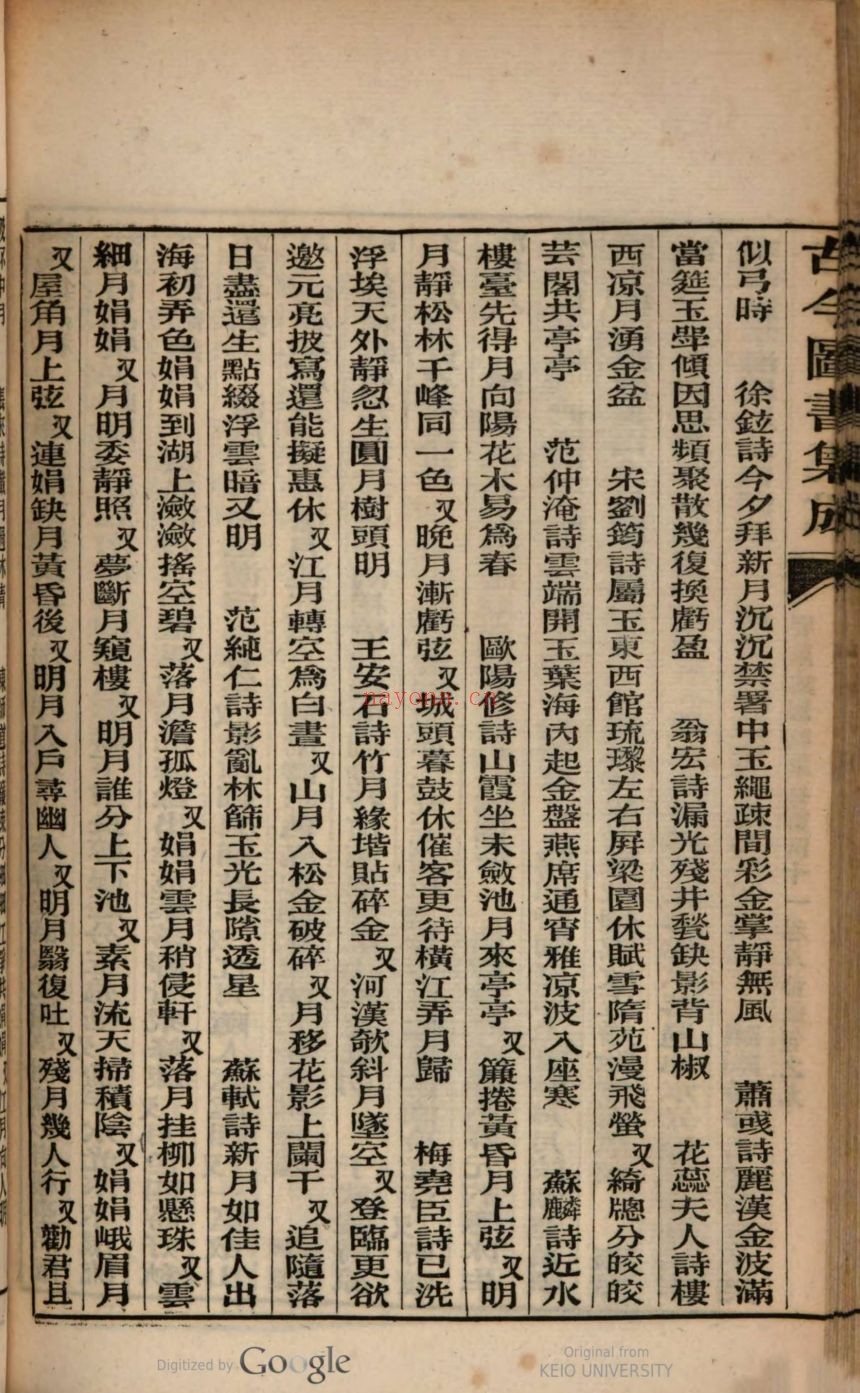 古今圖書集成
似弓時　徐鉉詩今夕拜新月沉沉禁署中玉繩疎間彩金掌靜無風　蕭彧詩麗漢金波滿
當筵玉斝傾因思頻聚散幾復換虧盈　翁宏詩漏光殘井甃缺影背山椒　花蕊夫人詩樓
西凉月湧金盆　宋劉筠詩屬玉東西館琉瓈左右屏梁園休賦雪隋苑漫飛螢　又綺牕分皎皎
芸閣共亭亭　范仲淹詩雲端開玉葉海內起金盤燕席通宵雅凉波入座寒　蘇麟詩近水
樓臺先得月向陽花木易爲春　歐陽修詩山霞坐未斂池月來亭亭　又簾捲黃昏月上弦　又明
月靜松林千峰同一色　又晚月漸虧弦　又城頭暮鼓休催客更待橫江弄月歸　梅堯臣詩已洗
浮埃天外靜忽生圓月樹頭明　王安石詩竹月緣堦貼碎金　又河漢欹斜月墜空　又登臨更欲
邀元亮披寫還能擬惠休　又江月轉空爲白晝　又山月入松金破碎　又月移花影上闌干　又追隨落
日盡還生點綴浮雲暗又明　范純仁詩影亂林篩玉光長隙透星　蘇軾詩新月如佳人出
海初弄色娟娟到湖上瀲瀲搖空碧　又落月澹孤燈　又娟娟雲月稍侵軒　又落月挂柳如懸珠　又雲
細月娟娟　又月明委靜照　又夢斷月窺樓　又明月誰分上下池　又素月流天掃積陰　又娟娟峨眉月
又屋角月上弦　又連娟缺月黃昏後　又明月入戶尋幽人　又明月翳復吐　又殘月幾人行　又勸君且
nayona.cn
Digitized by Google
Original from
KEIO UNIVERSITY